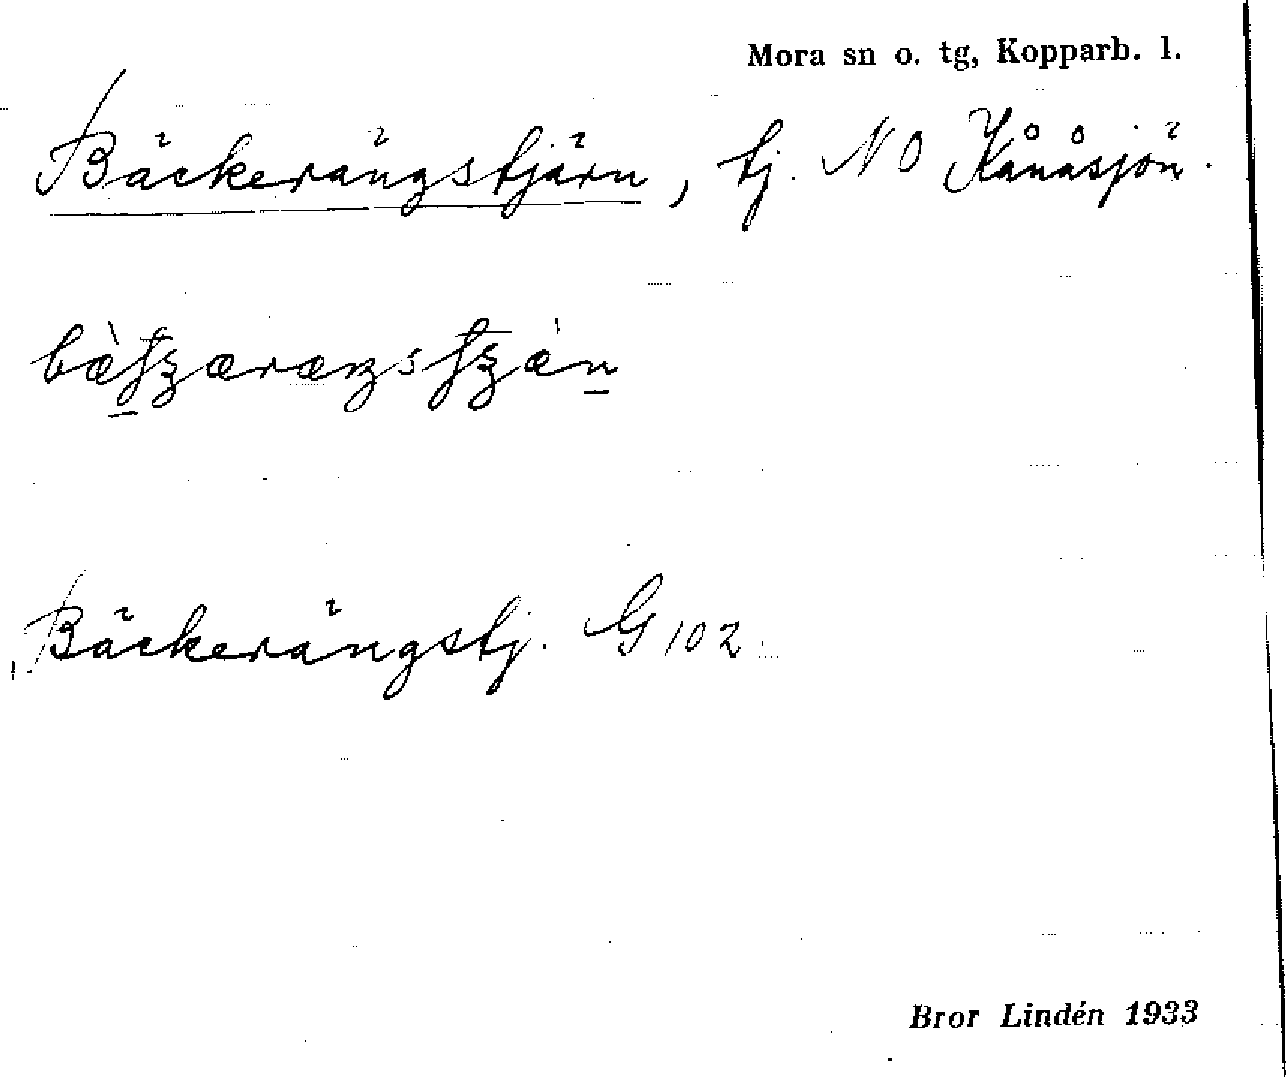 Mora sn o. tg, Kopparb. l.
Bäckerängstjärn, tj. NO Kånåsjön.
Bäckerängstj. G 102
Bror Lindén 1933